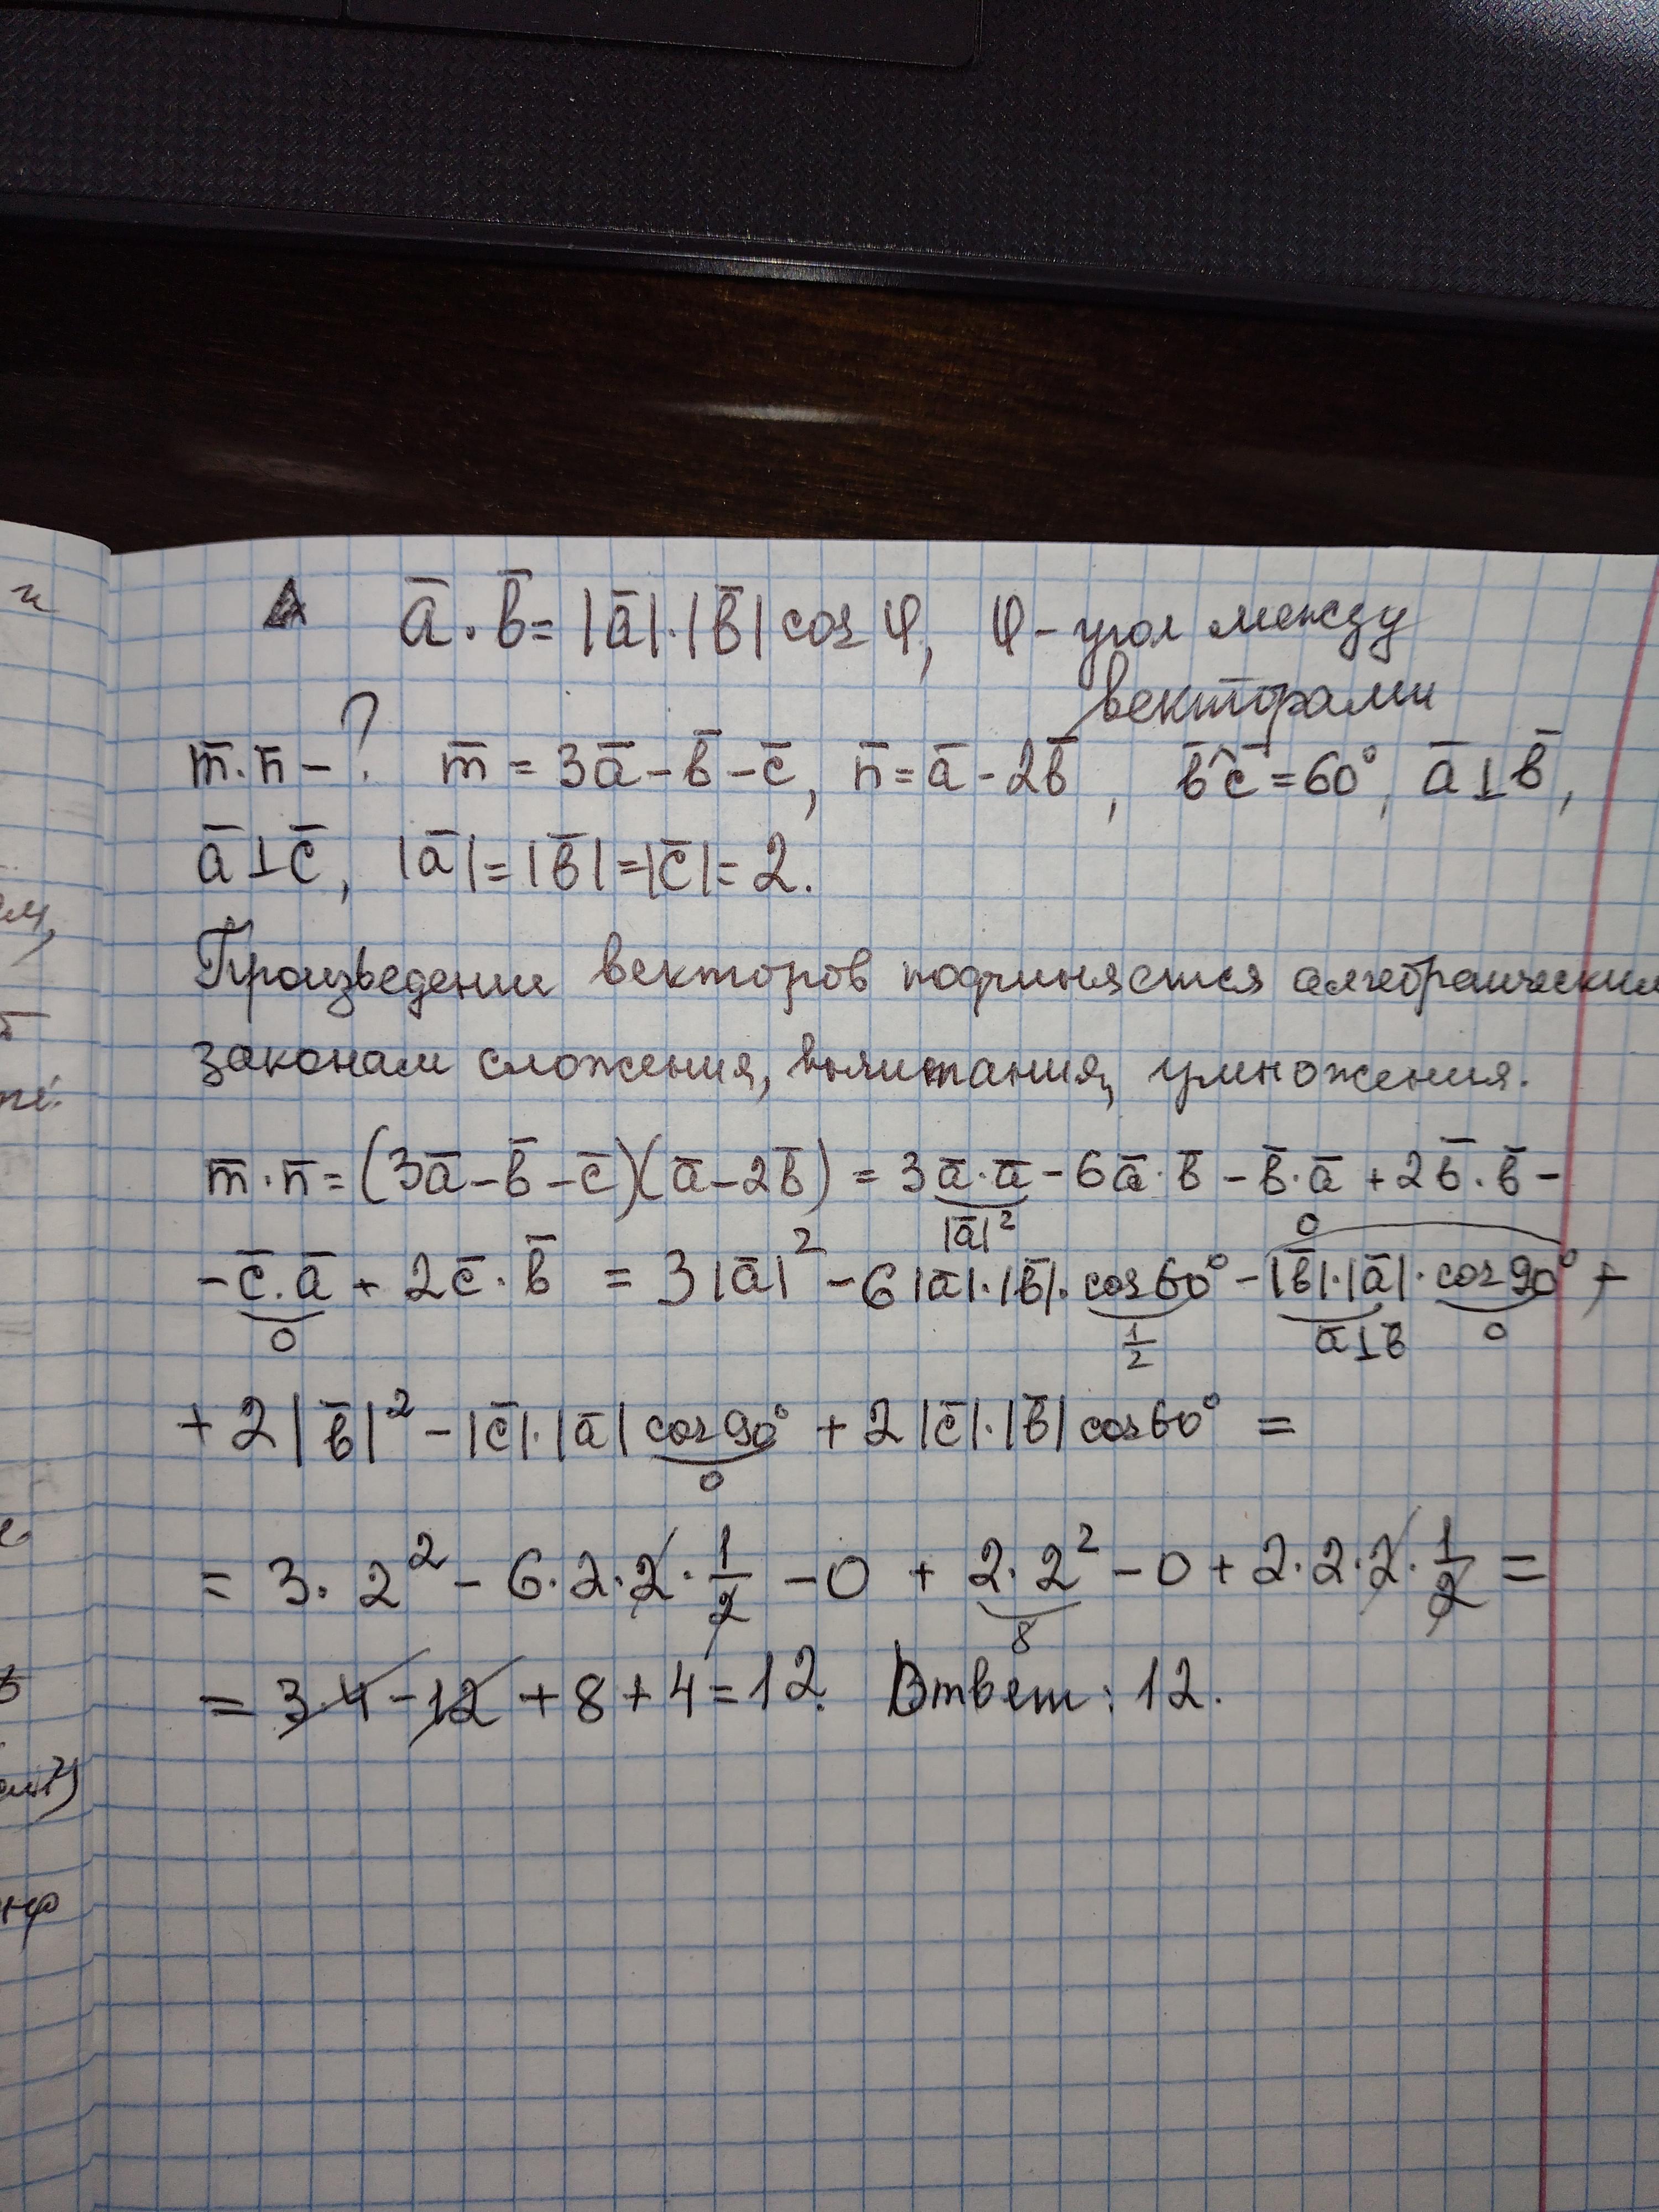 a̅·b̅=|a̅|·|b̅| cos φ, φ - угол между
векторами
m̅·n̅ - ? m̅ = 3a̅ - b̅ - c̅, n̅ = a̅ - 2b̅, b̅^c̅ = 60°, a̅⊥b̅,
a̅⊥c̅, |a̅|=|b̅|=|c̅|=2.
Произведении векторов подчиняется алгебраическим
законам сложения, вычитания, умножения.
m̅·n̅=(3a̅-b̅-c̅)(a̅-2b̅) = 3a̅·a̅ - 6a̅·b̅ - b̅·a̅ + 2b̅·b̅ -
|a̅|² 0
- c̅·a̅ + 2c̅·b̅ = 3|a̅|² - 6|a̅|·|b̅|·cos60° - |b̅|·|a̅|·cos90° +
0 1/2 a̅⊥b̅ 0
+ 2|b̅|² - |c̅|·|a̅| cos90° + 2|c̅|·|b̅| cos60° =
0
= 3·2² - 6·2·2·1/2 - 0 + 2·2² - 0 + 2·2·2·1/2 =
8
= 3·4 - 12 + 8 + 4 = 12. Ответ: 12.